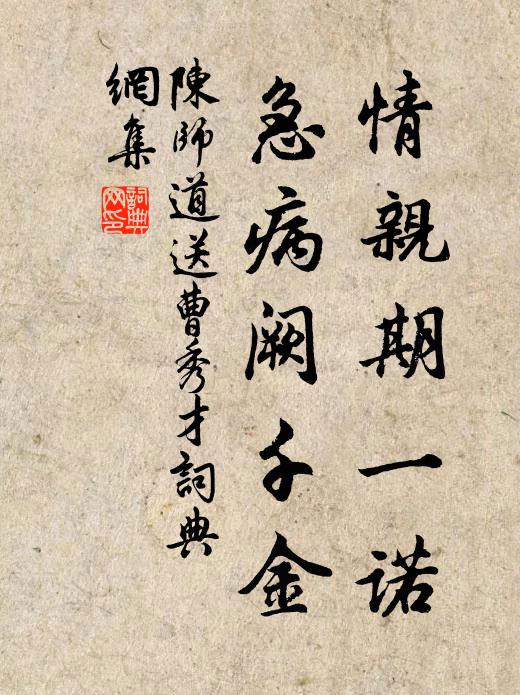 情親期一諾
急病闕千金
陳師道送曹秀才詞典
網集
詞典網印